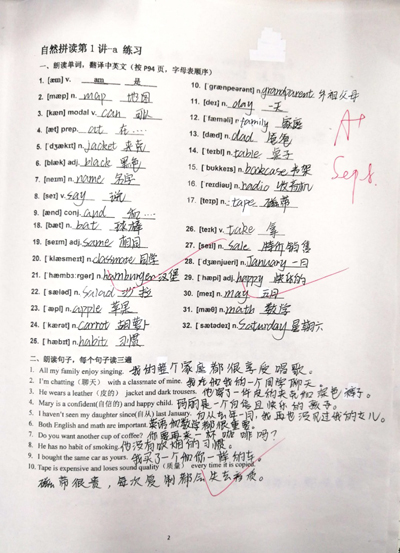 自然拼读第1讲-a 练习
一、朗读单词，翻译中英文（按P94页，字母表顺序）
1. [æm] v. am 是
2. [mæp] n. map 地图
3. [kæn] modal v. can 可以
4. [æt] prep. at 在…
5. [ˈdʒækɪt] n. jacket 夹克
6. [blæk] adj. black 黑色
7. [neɪm] n. name 名字
8. [seɪ] v. say 说
9. [ænd] conj. and 和…
10. [bæt] n. bat 球棒
19. [seɪm] adj. same 相同
20. [ˈklæsmeɪt] n. classmate 同学
21. [ˈhæmbɜːrgər] n. hamburger 汉堡
22. [ˈsæləd] n. salad 沙拉
23. [ˈæpl] n. apple 苹果
24. [ˈkærət] n. carrot 胡萝卜
25. [ˈhæbɪt] n. habit 习惯
10. [ˈgrænpeərənt] n. grandparent 外祖父母
11. [deɪ] n. day 一天
12. [ˈfæməli] n. family 家庭
13. [dæd] n. dad 爸爸
14. [ˈteɪbl] n. table 桌子
15. [ˈbʊkkeɪs] n. bookcase 书架
16. [ˈreɪdiəʊ] n. radio 收音机
17. [teɪp] n. tape 磁带
26. [teɪk] v. take 拿
27. [seɪl] n. sale 降价销售
28. [ˈdʒænjueri] n. January 一月
29. [ˈhæpi] adj. happy 快乐的
30. [meɪ] n. may 五月
31. [mæθ] n. math 数学
32. [ˈsætədeɪ] n. Saturday 星期六
A+
Sep8.
二、朗读句子，每个句子读三遍
1. All my family enjoy singing. 我的整个家庭都很喜欢唱歌。
2. I'm chatting（聊天） with a classmate of mine. 我在和我的一个同学聊天。
3. He wears a leather（皮的） jacket and dark trousers. 他穿了一件皮的夹克和深色裤子。
4. Mary is a confident(自信的) and happy child. 玛丽是一个自信且快乐的孩子。
5. I haven't seen my daughter since(自从) last January. 自从去年一月，我再也没见过我的女儿。
6. Both English and math are important. 英语和数学都很重要。
7. Do you want another cup of coffee? 你想要再来一杯咖啡吗？
8. He has no habit of smoking. 他没有吸烟的习惯。
9. I bought the same car as yours. 我买了一个和你一样的车。
10. Tape is expensive and loses sound quality（质量） every time it is copied.
磁带很贵，每次复制都会失去音质。
2